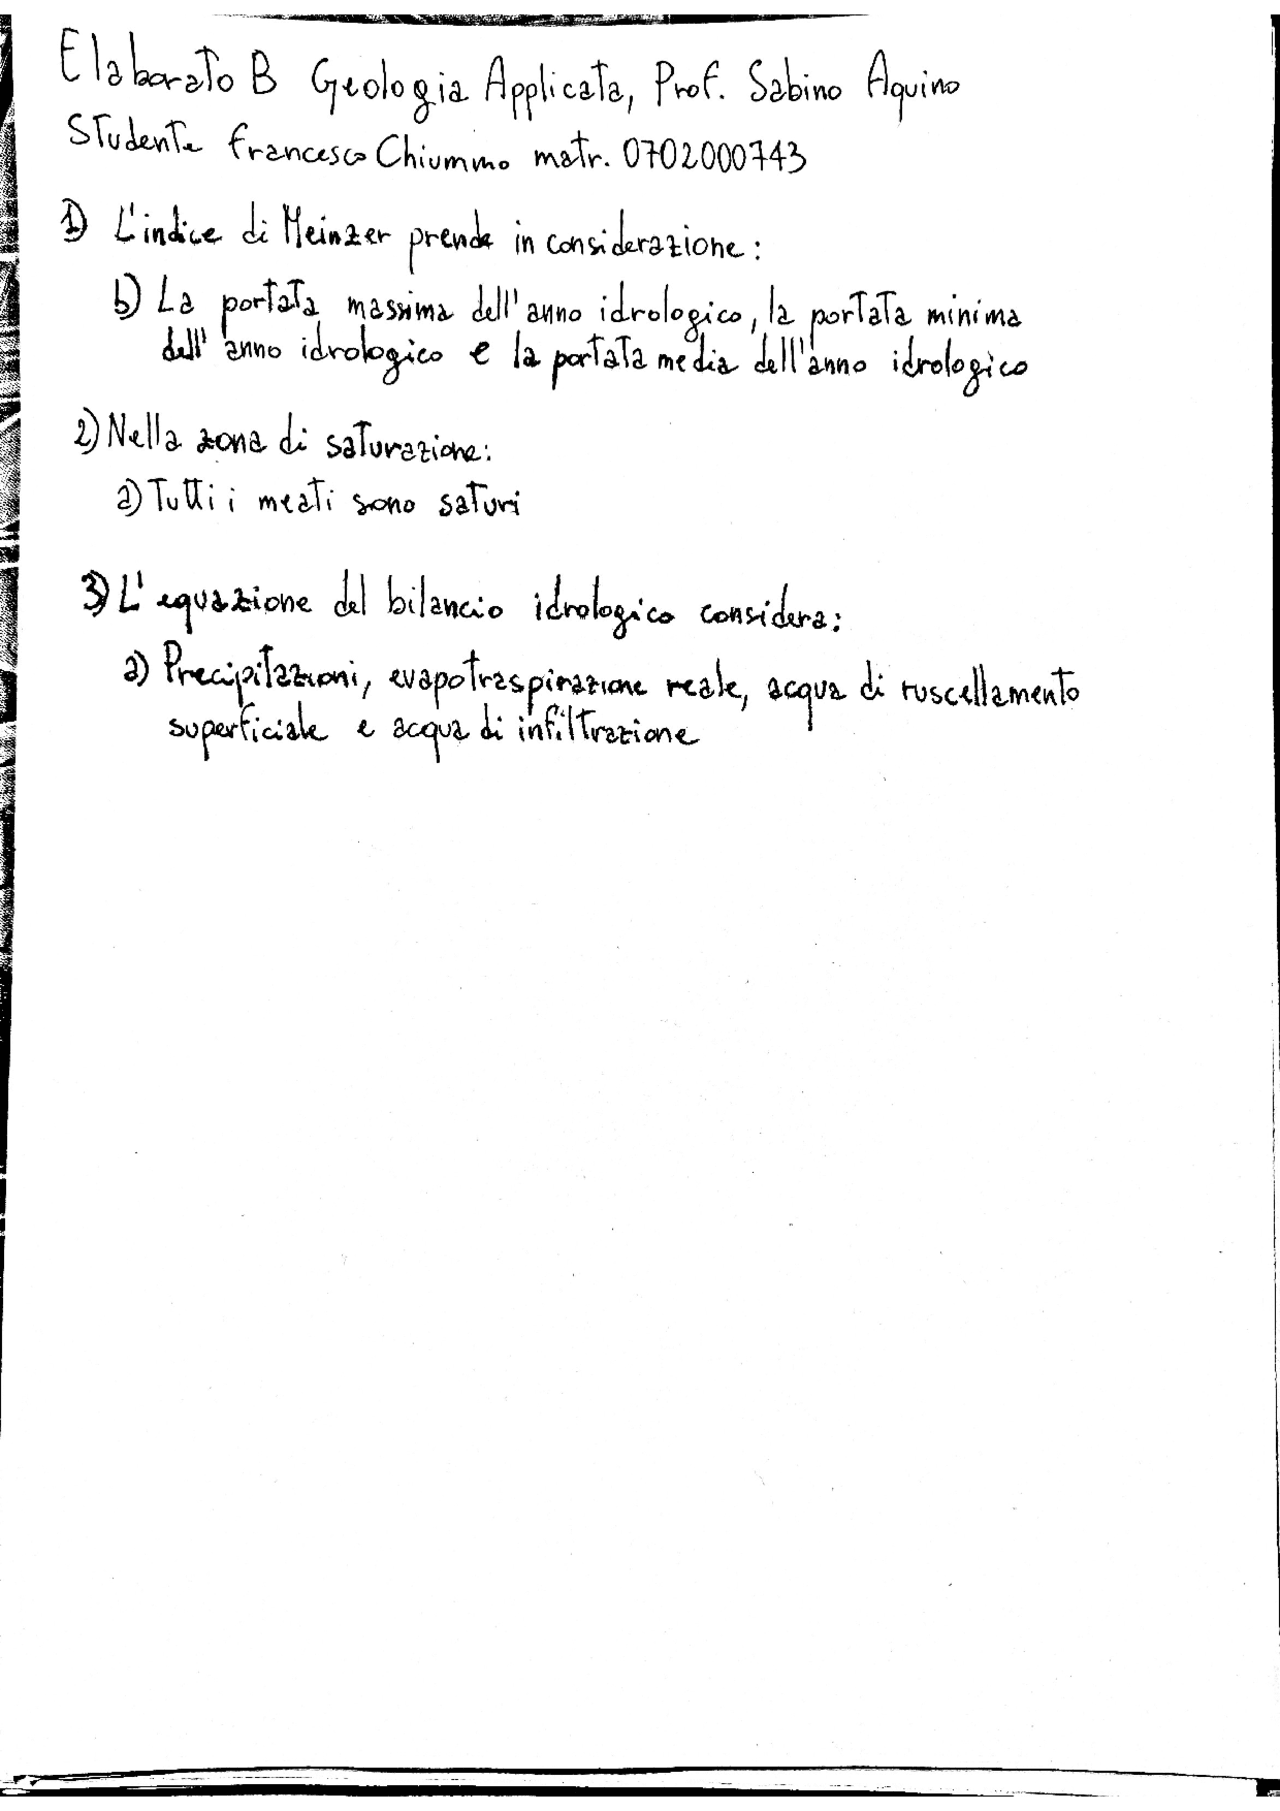 Elaborato B Geologia Applicata, Prof. Sabino Aquino
Studente Francesco Chiummo matr. 0702000743
1) L'indice di Meinzer prende in considerazione:
b) La portata massima dell'anno idrologico, la portata minima
dell'anno idrologico e la portata media dell'anno idrologico
2) Nella zona di saturazione:
a) Tutti i meati sono saturi
3) L'equazione del bilancio idrologico considera:
a) Precipitazioni, evapotraspirazione reale, acqua di ruscellamento
superficiale e acqua di infiltrazione